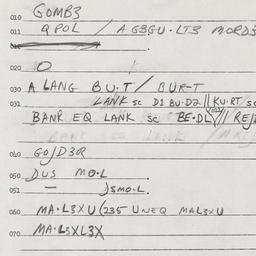 010 GOMB3
011 QPOL / AG3GU·LT3 MORD3
020 O
030 A LANG BU·T / BUR-T
031 LANK sc D1 BU·D2 || KU·RT sc
BANR EQ LANK sc BE·DL // REJ
040 GOJD3R
050 DUS MO·L
051 — JSMO·L.
060 MA·L3XU (235 UNEQ MAL3XU
070 MA·L3XL3X